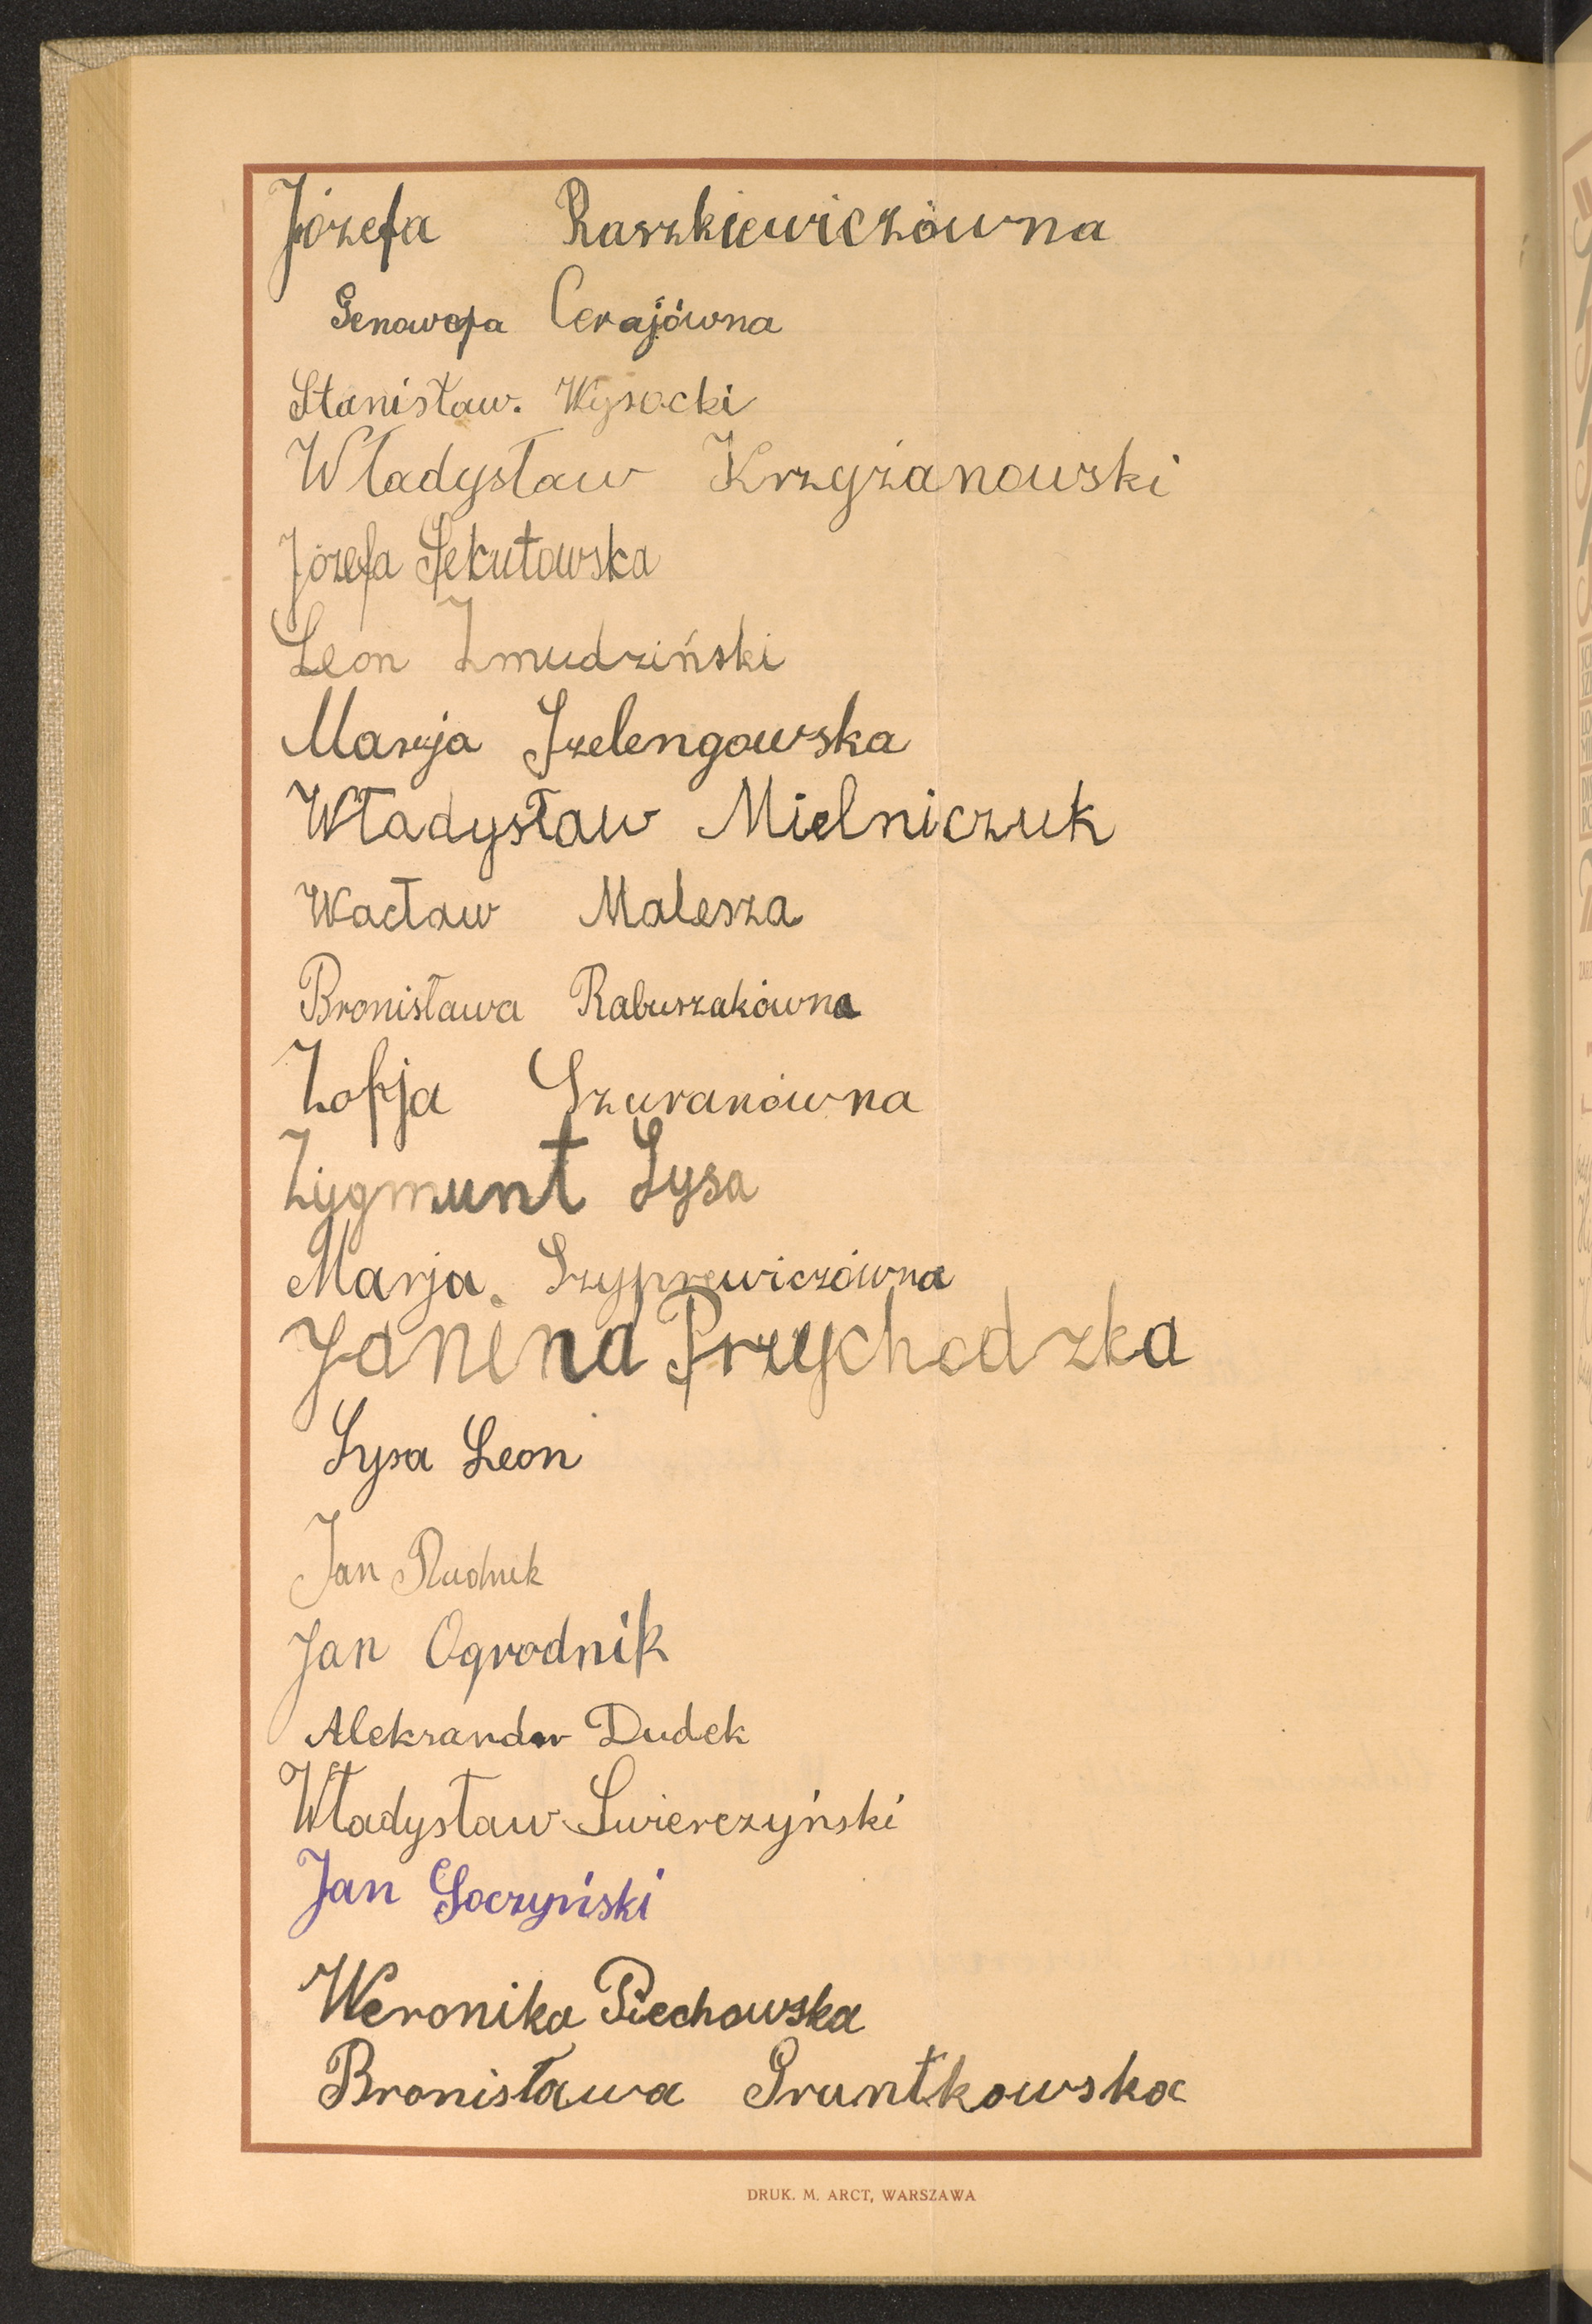 Józefa Raszkiewiczówna
Genowefa Cerajówna
Stanisław. Wysocki
Władysław Krzyżanowski
Józefa Sekutowska
Leon Żmudziński
Marja Szelengowska
Władysław Mielniczuk
Wacław Malesza
Bronisława Rabuszakówna
Zofja Szuranówna
Zygmunt Łysa
Marja Szyprewiczówna
Janina Przychodzka
Łysa Leon
Jan Rudnik
Jan Ogrodnik
Aleksander Dudek
Władysław Świerczyński
Jan Soczyński
Weronika Piechowska
Bronisława Gruntkowska
DRUK. M. ARCT, WARSZAWA